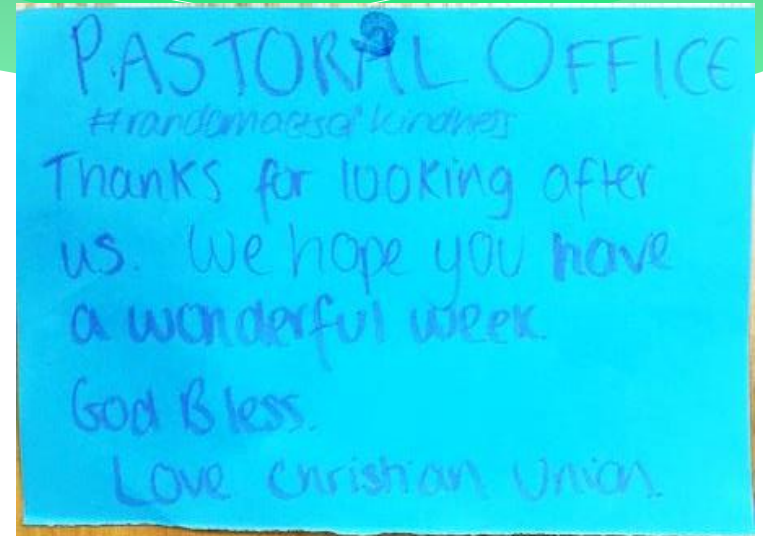 PASTORAL OFFICE
#randomactsofkindness
Thanks for looking after
us. We hope you have
a wonderful week.
God Bless.
Love Christian Union.